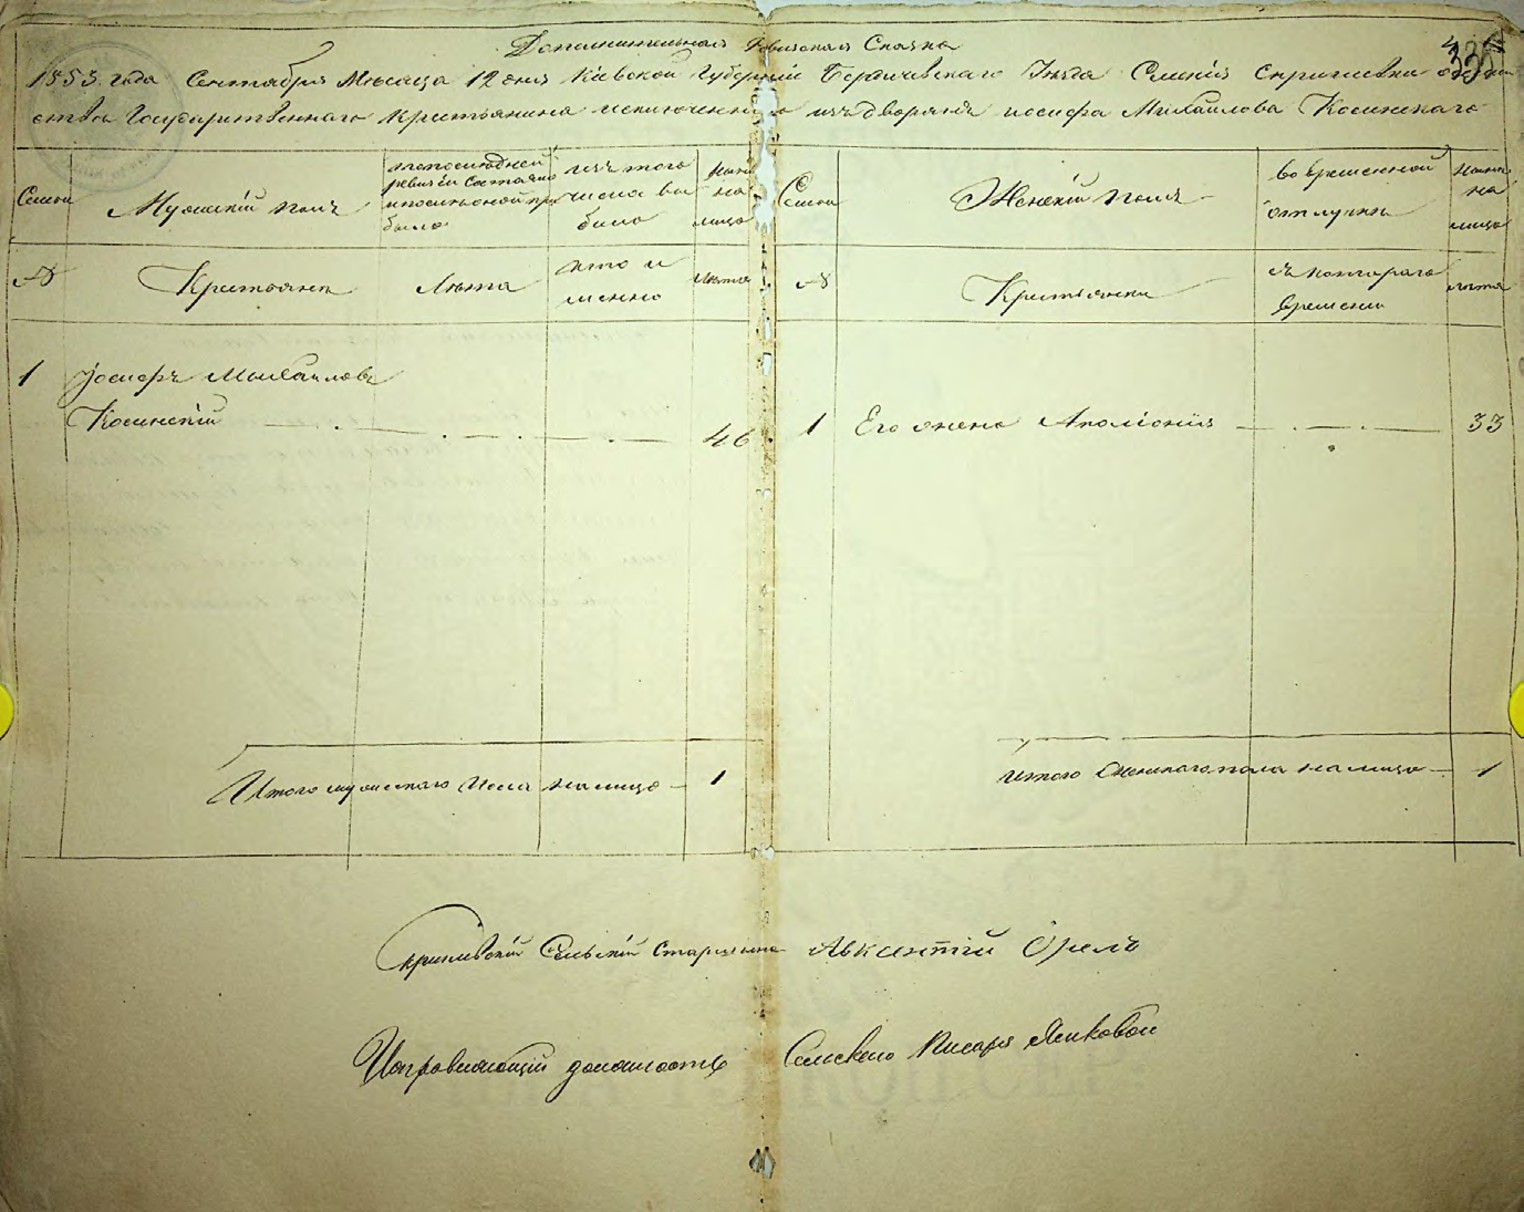 Дополнительная Ревизская Сказка
1853 года Сентября Месяца 12 дня Кіевской Губерніи Бердичевскаго Уезда Селенія Скриглевки
Государственнаго крестьянина исключеннаго изъ дворянъ иосифа Михайлова Косинскаго
Семьи
Мужескій полъ
по последней
ревизіи состояло
и после оной при
было
изъ того
числа вы
было
Ныне
на
лицо
Семьи
Женскій полъ
во временной
отлучке
Ныне
на
лицо
№
Крестьяне
Лета
кто и
менно
лета
№
Крестьянки
съ котораго
времени
лета
1
Іосифъ Михайловъ
Косинскій
46
1
Его жена Аполіонія
33
Итого мужескаго пола на лицо
1
Итого женскаго пола на лицо
1
Сельскій Старшина Авксентій Орелъ
Исправляющій должность Сельскаго Писаря